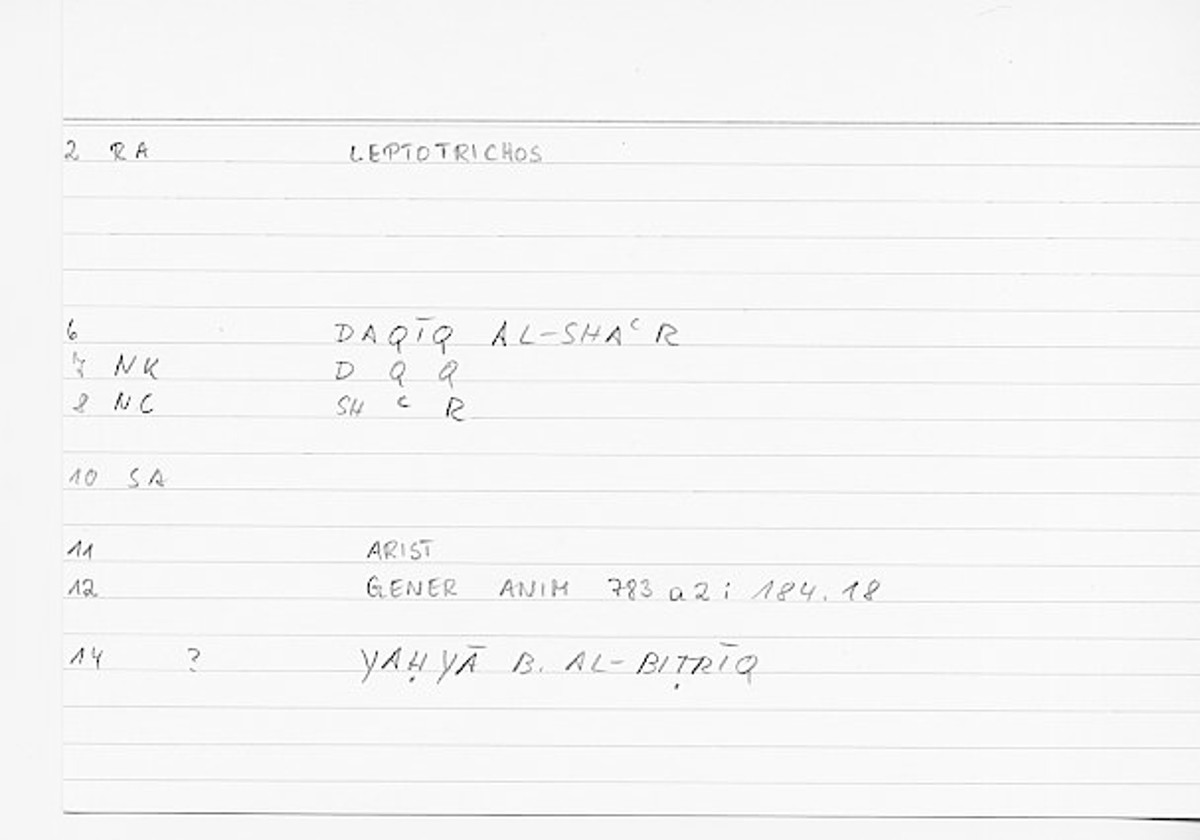 2 RA LEPTOTRICHOS
6 DAQĪQ AL-SHAᶜR
7 NK D Q Q
8 NC SH ᶜ R
10 SA
11 ARIST
12 GENER ANIM 783 a2; 184.18
14 ? YAḤYĀ B. AL-BIṬRĪQ